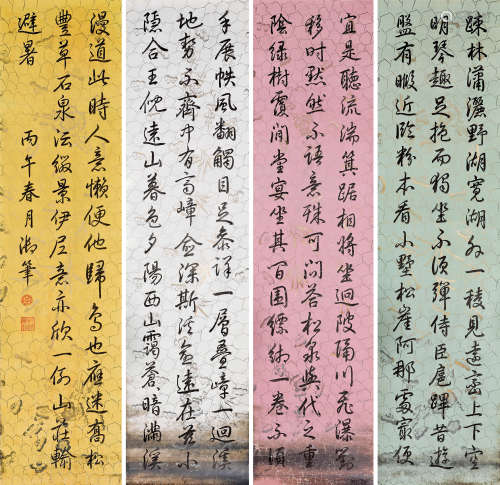 疎林瀟灑野湖寬湖外一稜見畫巒上下空
明琴趣足抱而獨坐不須彈侍臣扈蹕昔遊
盤有暇近臨粉本看小墅松崖阿那處最便
宜是聽流湍箕踞相將坐迴陂隔川飛瀑對
移時默然不語意殊可問答松泉與代之重
陰綠樹覆閒堂宴坐其百圍縹緗一卷不須
手展帙風翻觸目足參詳一層疊嶂一迴溪
地勢不齊中有高嶂僉深斯淡益遠在茲小
隱合王倪遠山暮色夕陽西山靄蒼暗滿溪
漫道此時人意懶便他歸鳥也應迷高松
豐草石泉沄綴景伊尼意亦欣一例山莊輸
避暑 丙午春月御筆